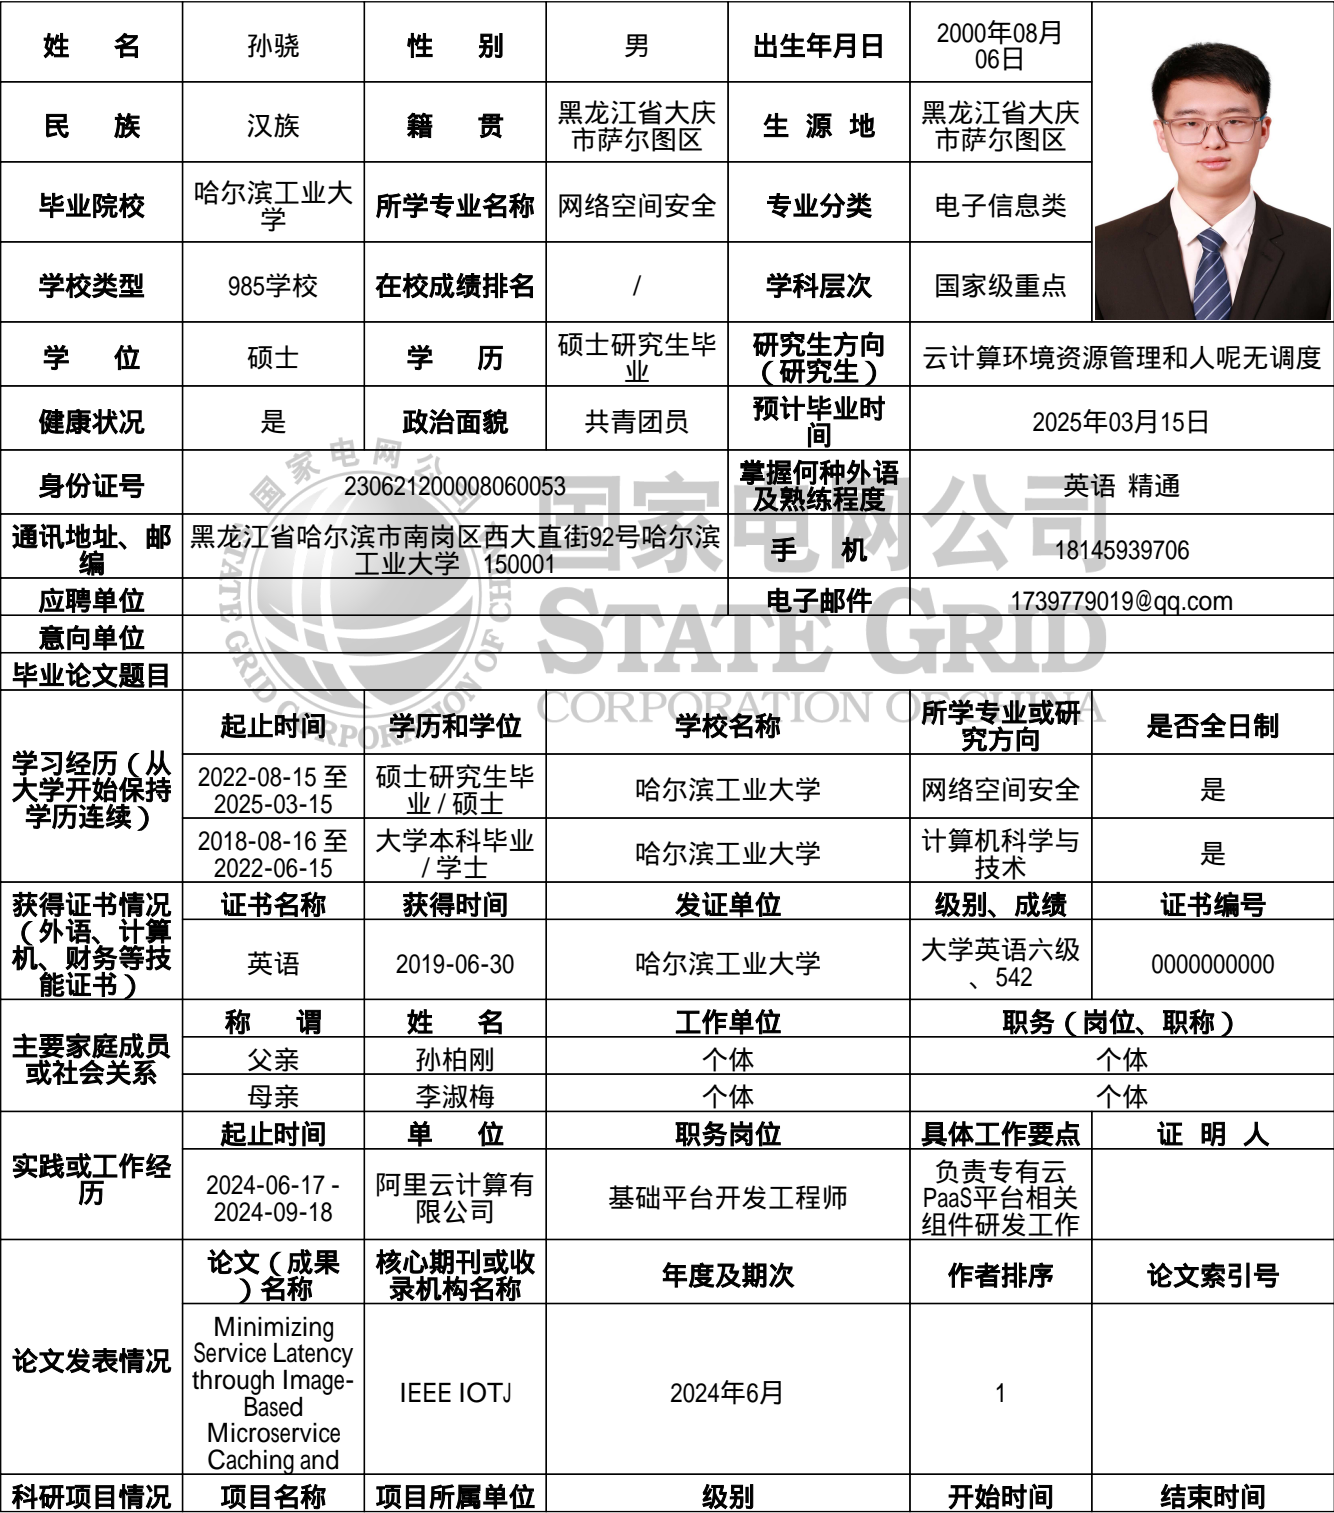 姓 名 孙骁 性 别 男 出生年月日 2000年08月
06日
民 族 汉族 籍 贯 黑龙江省大庆
市萨尔图区 生 源 地 黑龙江省大庆
市萨尔图区
毕业院校 哈尔滨工业大
学 所学专业名称 网络空间安全 专业分类 电子信息类
学校类型 985学校 在校成绩排名 / 学科层次 国家级重点
学 位 硕士 学 历 硕士研究生毕
业 研究生方向
（研究生） 云计算环境资源管理和人呢无调度
健康状况 是 政治面貌 共青团员 预计毕业时
间 2025年03月15日
身份证号 230621200008060053 掌握何种外语
及熟练程度 英语 精通
通讯地址、邮
编 黑龙江省哈尔滨市南岗区西大直街92号哈尔滨
工业大学 150001 手 机 18145939706
应聘单位 电子邮件 1739779019@qq.com
意向单位
毕业论文题目
国家电网公司
STATE GRID
CORPORATION OF CHINA
国家电网公司
STATE GRID CORPORATION OF CHINA
学习经历（从
大学开始保持
学历连续）
起止时间 学历和学位 学校名称 所学专业或研
究方向 是否全日制
2022-08-15 至
2025-03-15 硕士研究生毕
业 / 硕士 哈尔滨工业大学 网络空间安全 是
2018-08-16 至
2022-06-15 大学本科毕业
/ 学士 哈尔滨工业大学 计算机科学与
技术 是
获得证书情况
（外语、计算
机、财务等技
能证书）
证书名称 获得时间 发证单位 级别、成绩 证书编号
英语 2019-06-30 哈尔滨工业大学 大学英语六级
、542 0000000000
主要家庭成员
或社会关系
称 谓 姓 名 工作单位 职务（岗位、职称）
父亲 孙柏刚 个体 个体
母亲 李淑梅 个体 个体
实践或工作经
历
起止时间 单 位 职务岗位 具体工作要点 证 明 人
2024-06-17 -
2024-09-18 阿里云计算有
限公司 基础平台开发工程师 负责专有云
PaaS平台相关
组件研发工作
论文发表情况
论文（成果
）名称 核心期刊或收
录机构名称 年度及期次 作者排序 论文索引号
Minimizing
Service Latency
through Image-
Based
Microservice
Caching and IEEE IOTJ 2024年6月 1
科研项目情况 项目名称 项目所属单位 级别 开始时间 结束时间